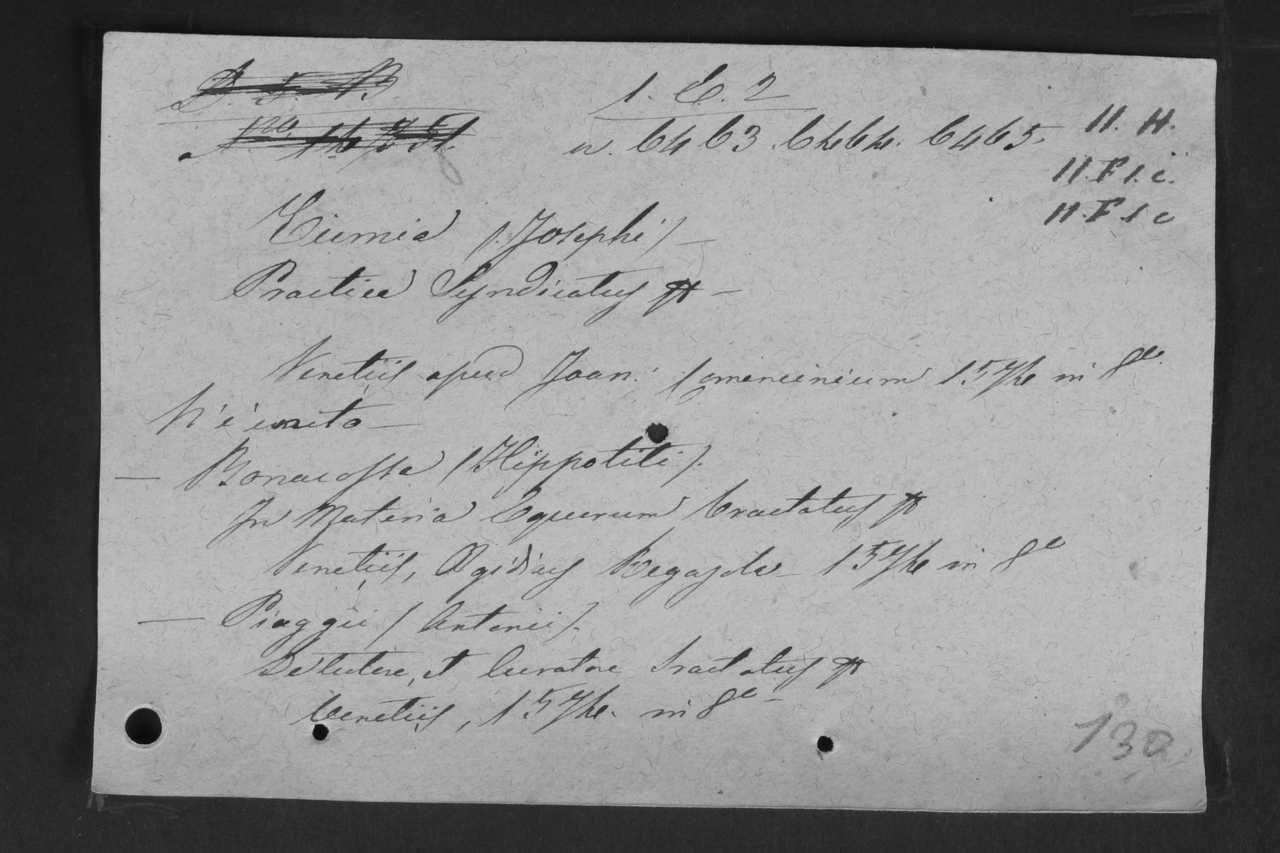 1. E. 2
n. 6463. 6464. 6465.
11. H.
11. F 1. c.
11. F 1 c
Cumia (Josephi) —
Practica Syndicatus
Venetiis apud Joan. Comencinium 1574 in 8º
Vi è unito —
— Bonacossa (Hippoliti).
In Materia Equorum tractatus
Venetiis, Egidius Regazola 1574 in 8º
— Piaggii (Antonii).
De tutore, et curatore tractatus
Venetiis, 1574. in 8º —
130